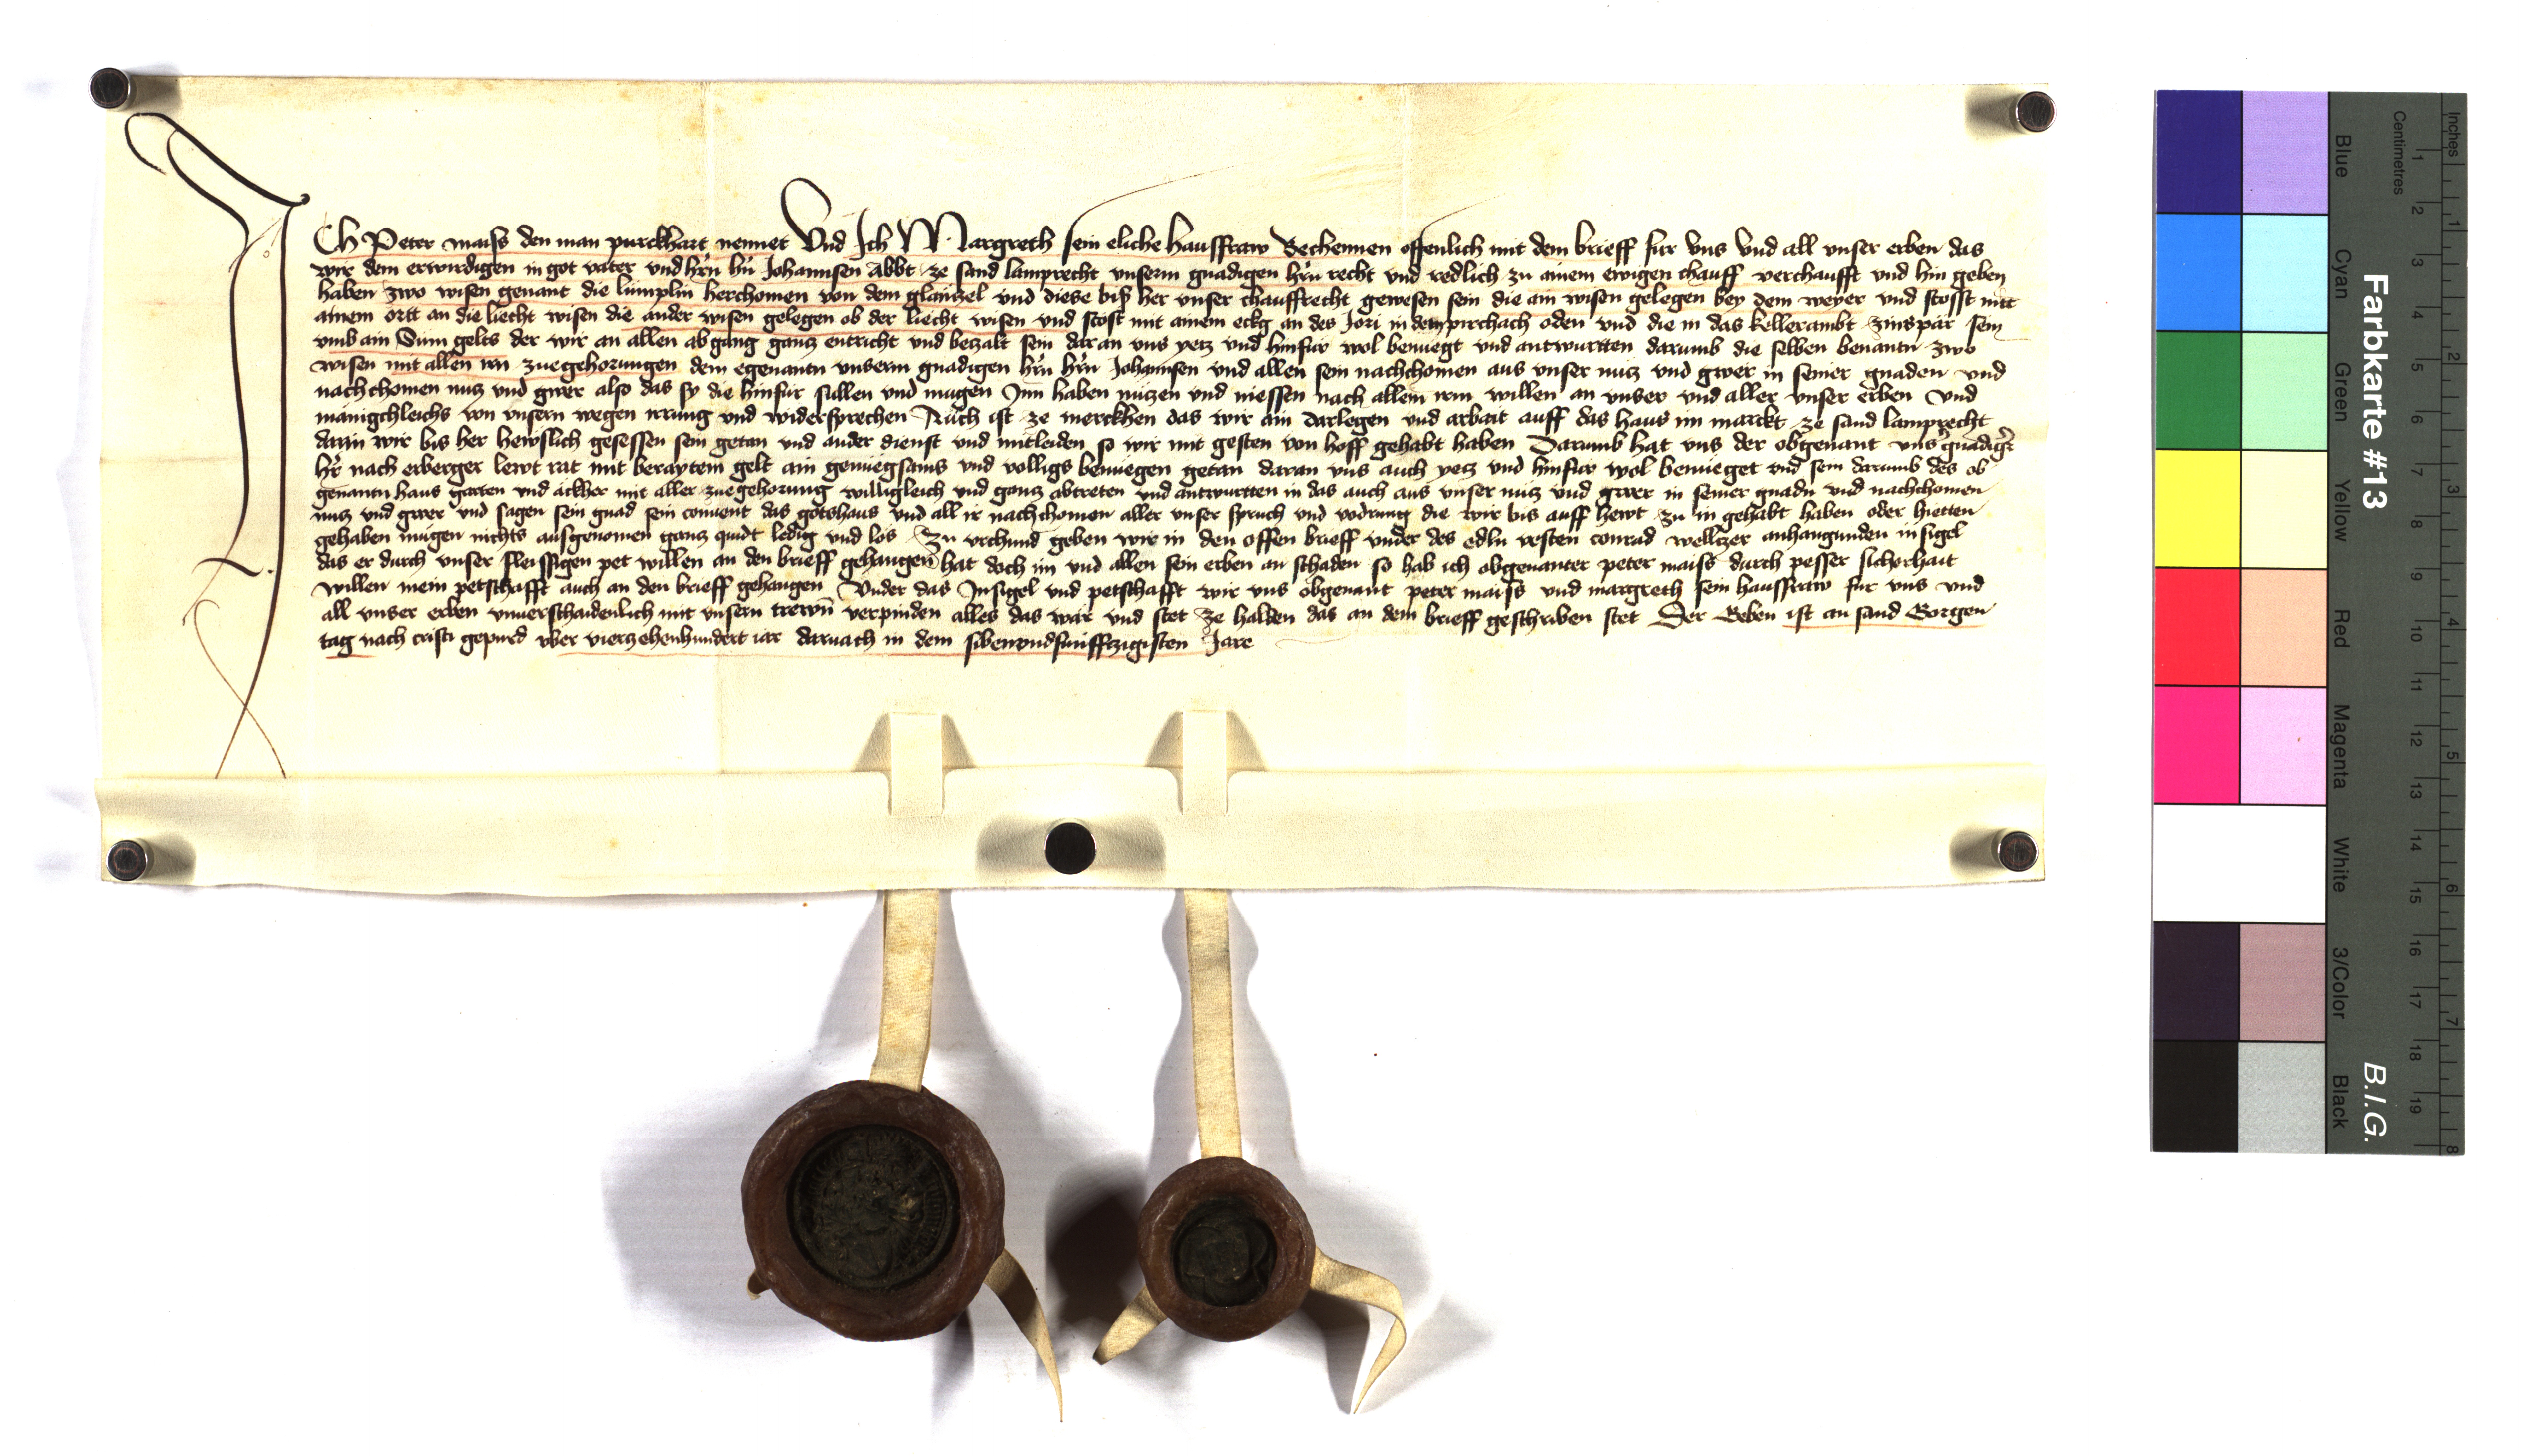 ICh Peter maiss den man purckhart nennet Und Ich Margreth sein eliche hausfraw Bechennen offenlich mit dem brieff fur uns und all unser erben das
wir dem erwirdigen in got vater und hrn hn Johannsen Abbt ze sand lamprecht unserm gnadigen hrn recht und redlich zu ainem ewigen chauff verchaufft und hin geben
haben zwo wisen genant die lumplin herchomen von dem glanczel und diese bis her unser chauffrecht gewesen sein die ain wisen gelegen bey dem weyer und stosst mit
ainem ortt an die liecht wisen die ander wisen gelegen ob der liecht wisen und stost mit ainem eckg an des Jori in dem pirchach oden und die in das kellerambt zinspar sein
umb ain Sum gelts der wir an allen abgang gancz entricht und beczalt sein daran uns yecz und hinfur wol benuegt und antwurtten darumb die selben benantn zwo
wisen mit allen irn zuegehorungen dem egenantn unserm gnadigen hrn hrn Johannsen und allen sein nachchomen aus unser nucz und gwer in seiner gnaden und
nachchomen nucz und gwer also das sy die hinfur sullen und mugen Inn haben nuczen und niessen nach allem irm willen an unser und aller unser erben Und
manigchleichs von unsern wegen irrung und widersprechen Auch ist ze merckhen das wir ain darlegen und arbait auff das haus im marckt ze sand lamprecht
darin wir bis her hewslich gesessen sein getan und ander dienst und mitleiden so wir mit gesten von hoff gehabt haben Darumb hat uns der obgenant uns gnadigr
hr nach erberger lewt rat mit beraytem gelt ain genuegsams und volligs benuegen getan daran uns auch yecz und hinfur wol benueget und sein darumb des ob
genantn haus garten und ackher mit aller zuegehorung willigleich und gancz abtreten und antwurtten in das auch aus unser nucz und gwer in seiner gnadn und nachchomen
nucz und gwer und sagen sein gnad sein convent das gotshaus und all ir nachchomen aller unser spruch und vodrung die wir bis auff hewt zu in gehabt haben oder hietten
gehaben mugen nichts ausgenomen gancz quidt ledig und los Zu urchund geben wir in den offen brieff under des edln vesten conrad welltzer anhangunden insigel
das er durch unser fleissigen pet willen an den brieff gehangen hat doch im und allen sein erben an schaden so hab ich obgenanter peter maiss durch pesser sicherhait
willen mein petschafft auch an den brieff gehangen Under das Insigel und petschafft wir uns obgenant peter maiss und margreth sein hausfraw fur uns und
all unser erben unverschaidenlich mit unsern trewn verpinden alles das war und stet ze halden das an dem brieff geschriben stet Der Geben ist an sand Gorgen
tag nach cristi gepurd uber vierzehenhundert iar darnach in dem sibenundfunffczigisten Jare
Inches
Centimetres
1 2 3 4 5 6 7 8 9 10 11 12 13 14 15 16 17 18 19
1 2 3 4 5 6 7 8
Farbkarte #13
B.I.G.
Blue
Cyan
Green
Yellow
Red
Magenta
White
3/Color
Black